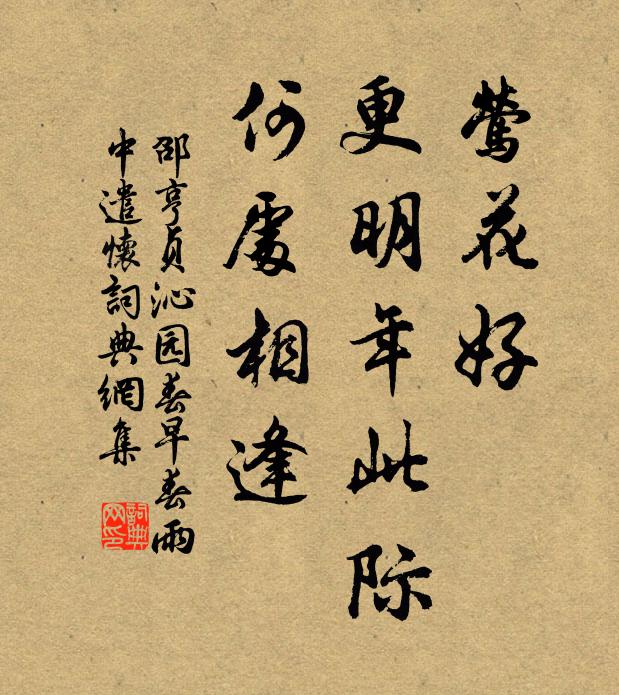 莺花好
更明年此际
何處相逢
邵亨贞沁园春早春雨
中遣懷詞典網集
詞典
网印